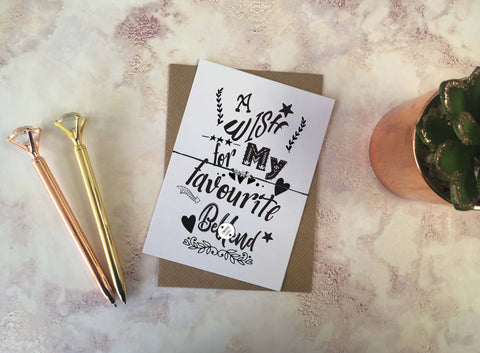 A
Wish
for My
favourite
Bellend